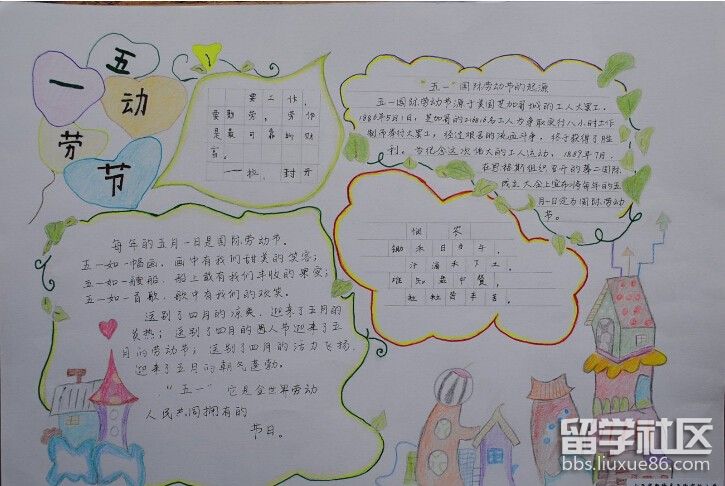 五
一
劳
动
节
要工作,
要勤劳,劳作
是最可靠的财
富。
——拉,封丹
"五一"国际劳动节的起源
五一国际劳动节源于美国芝加哥城的工人大罢工,
1886年5月1日,芝加哥的216000名工人为争取实行八小时工作
制而举行大罢工,经过艰苦的流血斗争,终于获得了胜
利。为纪念这次伟大的工人运动,1889年7月,
在恩格斯组织召开的第二国际
成立大会上宣布将每年的五
月一日定为国际劳动
节。
悯农
锄禾日当午,
汗滴禾下土。
谁知盘中餐,
粒粒皆辛苦。
每年的五月一日是国际劳动节。
五一如一幅画,画中有我们甜美的笑容;
五一如一艘船,船上载有我们丰收的果实;
五一如一首歌,歌中有我们的欢笑。
送别了四月的凉爽,迎来了五月的
炎热;送别了四月的愚人节迎来了五
月的劳动节;送别了四月的活力飞扬,
迎来了五月的朝气蓬勃。
"五一"它是全世界劳动
人民共同拥有的
节日。
留学社区
bbs.liuxue86.com